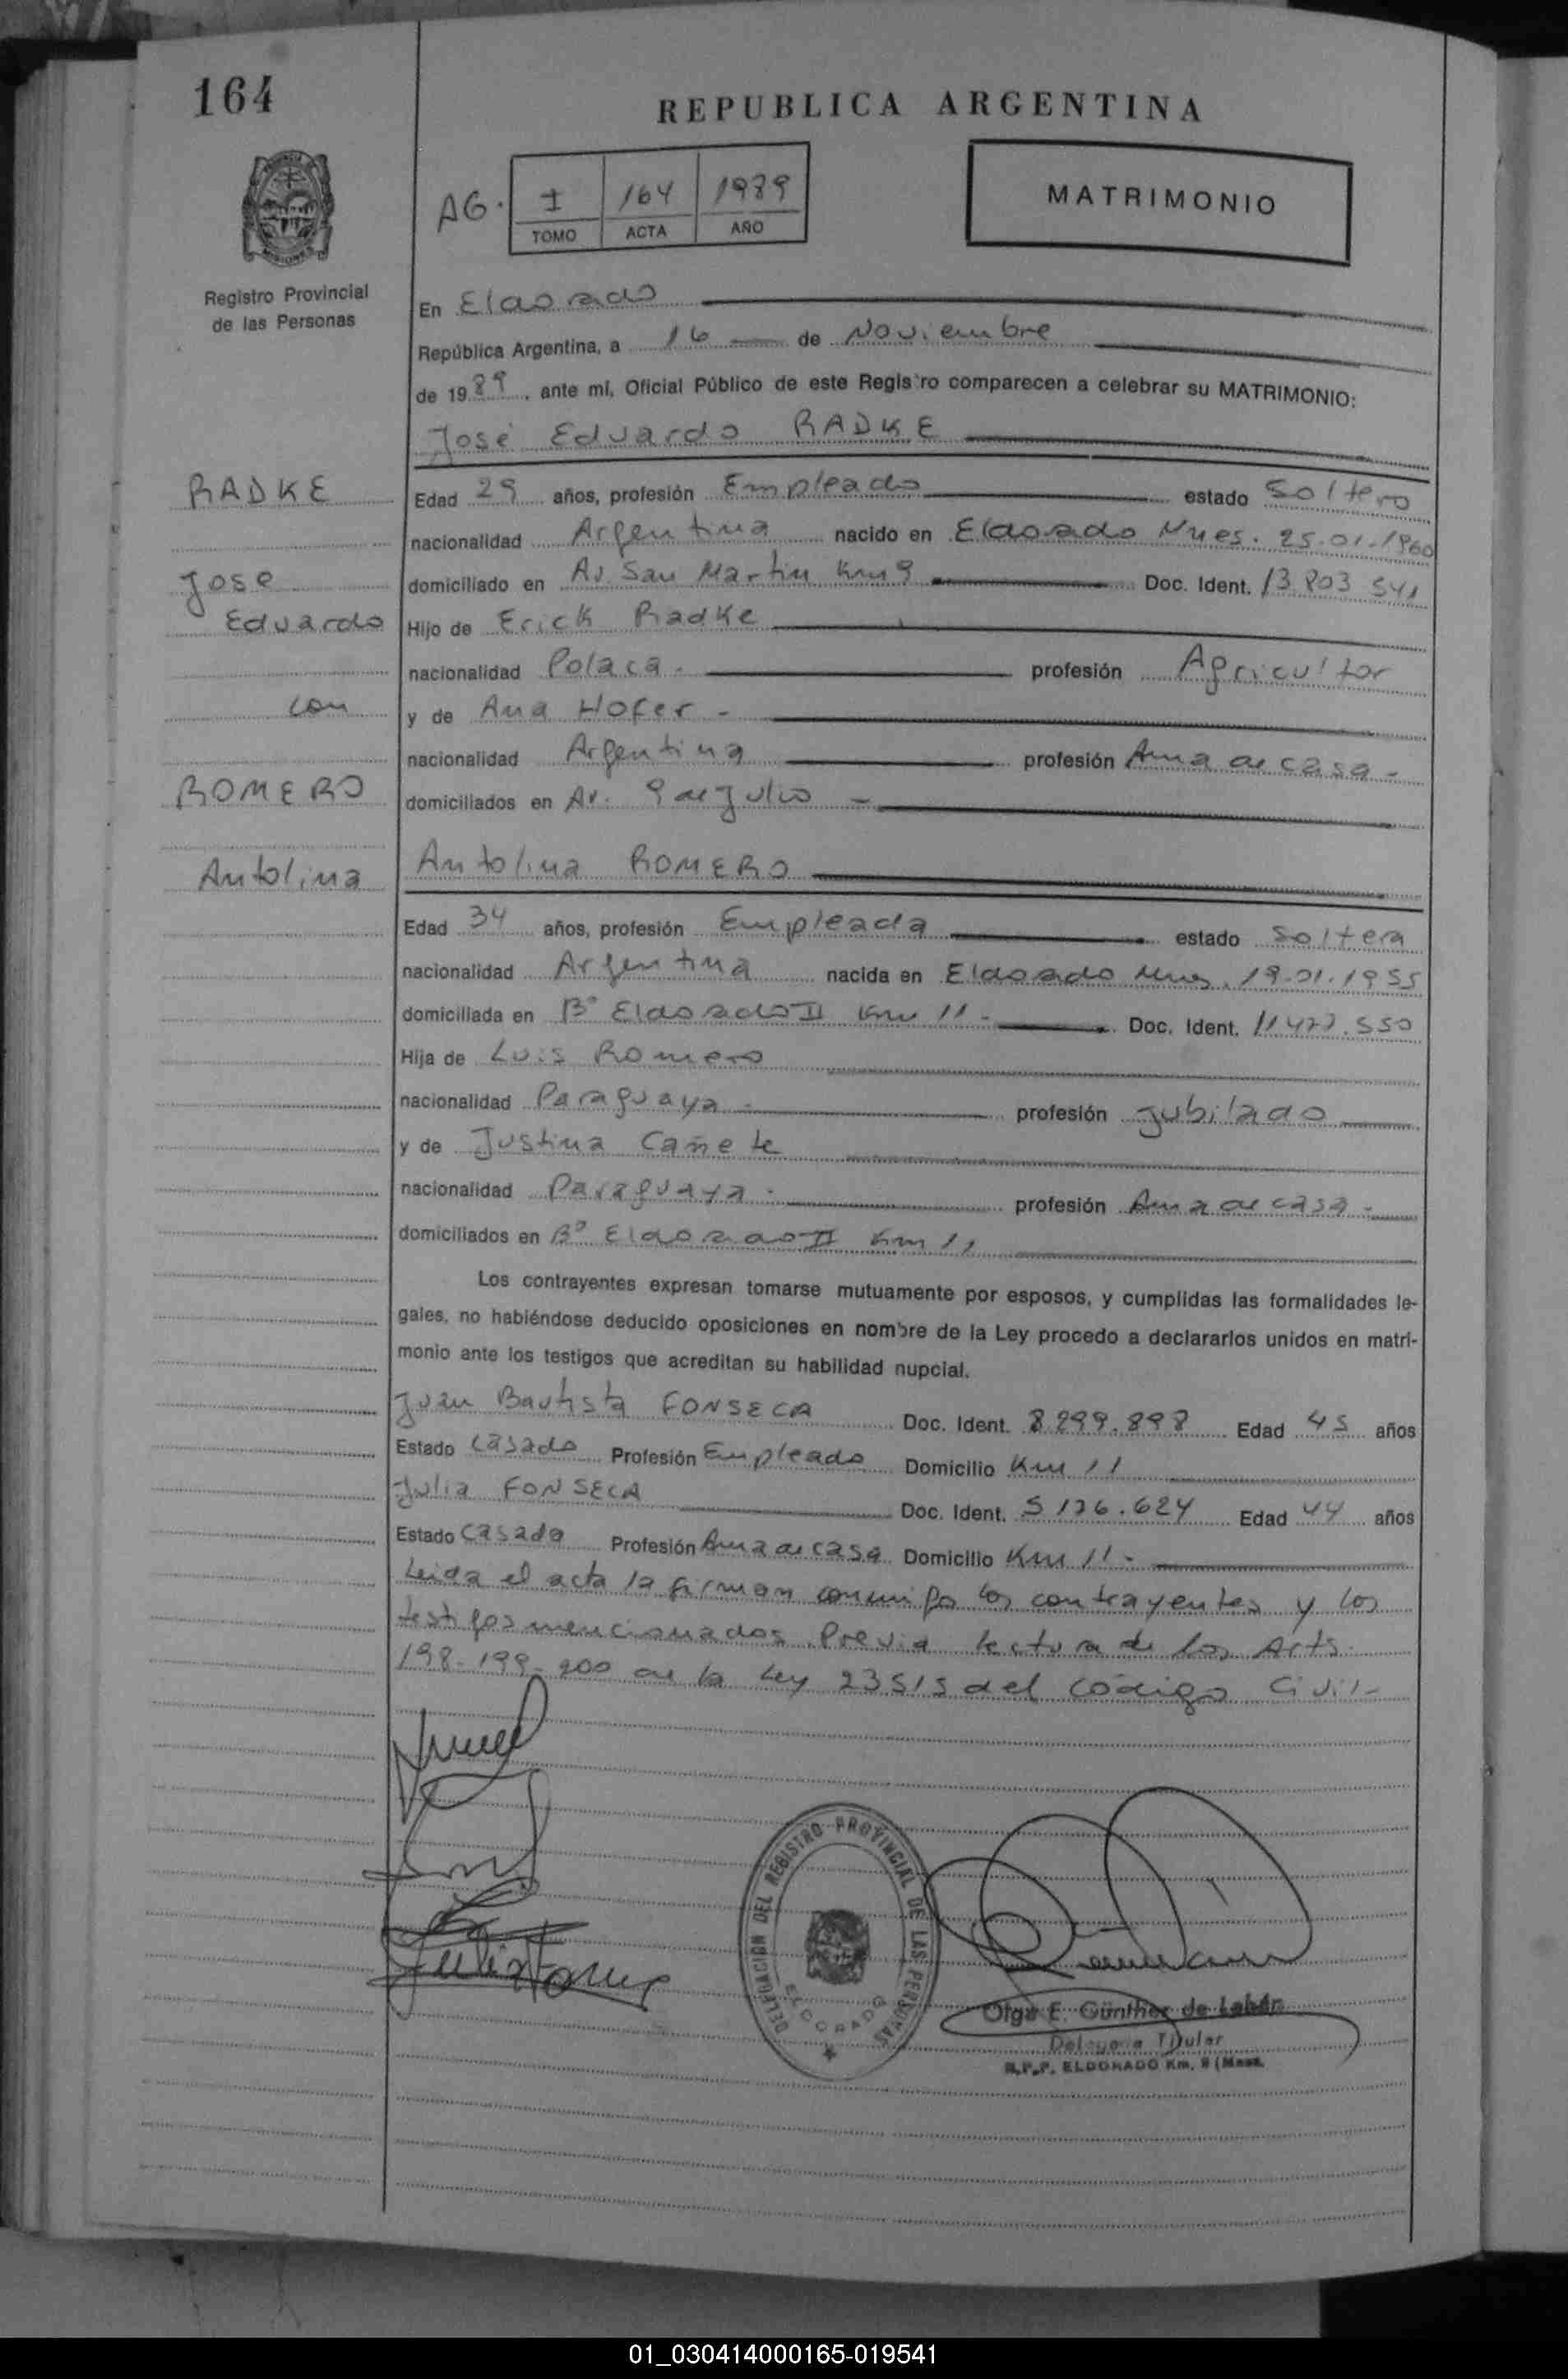 164
REPUBLICA ARGENTINA
AG. I 164 1989
TOMO ACTA AÑO
MATRIMONIO
Registro Provincial
de las Personas
En Eldorado
República Argentina, a 16 de Noviembre
de 1989, ante mí, Oficial Público de este Registro comparecen a celebrar su MATRIMONIO:
José Eduardo RADKE
RADKE
Edad 29 años, profesión Empleado estado Soltero
nacionalidad Argentina nacido en Eldorado Mnes. 25.01.1960
Jose
domiciliado en Av San Martin Km 9 Doc. Ident. 13.803.541
Eduardo
Hijo de Erick Radke
nacionalidad Polaca.- profesión Agricultor
con
y de Ana Hofer -
nacionalidad Argentina profesión Ama de casa -
ROMERO
domiciliados en Av. 9 de Julio -
Antolina
Antolina ROMERO
Edad 34 años, profesión Empleada estado Soltera
nacionalidad Argentina nacida en Eldorado Mnes. 19.01.1955
domiciliada en B° Eldorado II Km 11 - Doc. Ident. 11.477.550
Hija de Luis Romero
nacionalidad Paraguaya - profesión Jubilado
y de Justina Cañete
nacionalidad Paraguaya - profesión Ama de casa -
domiciliados en B° Eldorado II Km 11
Los contrayentes expresan tomarse mutuamente por esposos, y cumplidas las formalidades le-
gales, no habiéndose deducido oposiciones en nombre de la Ley procedo a declararlos unidos en matri-
monio ante los testigos que acreditan su habilidad nupcial.
Juan Bautista FONSECA Doc. Ident. 8.299.898 Edad 45 años
Estado Casado Profesión Empleado Domicilio Km 11
Julia FONSECA Doc. Ident. 5.136.624 Edad 44 años
Estado Casada Profesión Ama de casa Domicilio Km 11 -
Leida el acta la firman conmigo los contrayentes y los
testigos mencionados. Previa lectura de los Arts.
198-199-200 de la Ley 23515 del código Civil-
DELEGACION DEL REGISTRO PROVINCIAL DE LAS PERSONAS
ELDORADO
Olga E. Günther de
Delegada Titular
R.P.P. ELDORADO Km. 9 (Mnes.
01_030414000165-019541